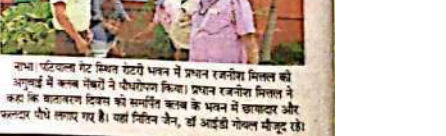 नाभा। पटियाला गेट स्थित रोटरी भवन में प्रधान रजनीश मित्तल की
अगुवाई में क्लब मेंबरों ने पौधरोपण किया। प्रधान रजनीश मित्तल ने
कहा कि वातावरण दिवस को समर्पित क्लब के भवन में छायादार और
फलदार पौधे लगाए गए है। यहां नितिन जैन, डॉ आईडी गोयल मौजूद रहे।